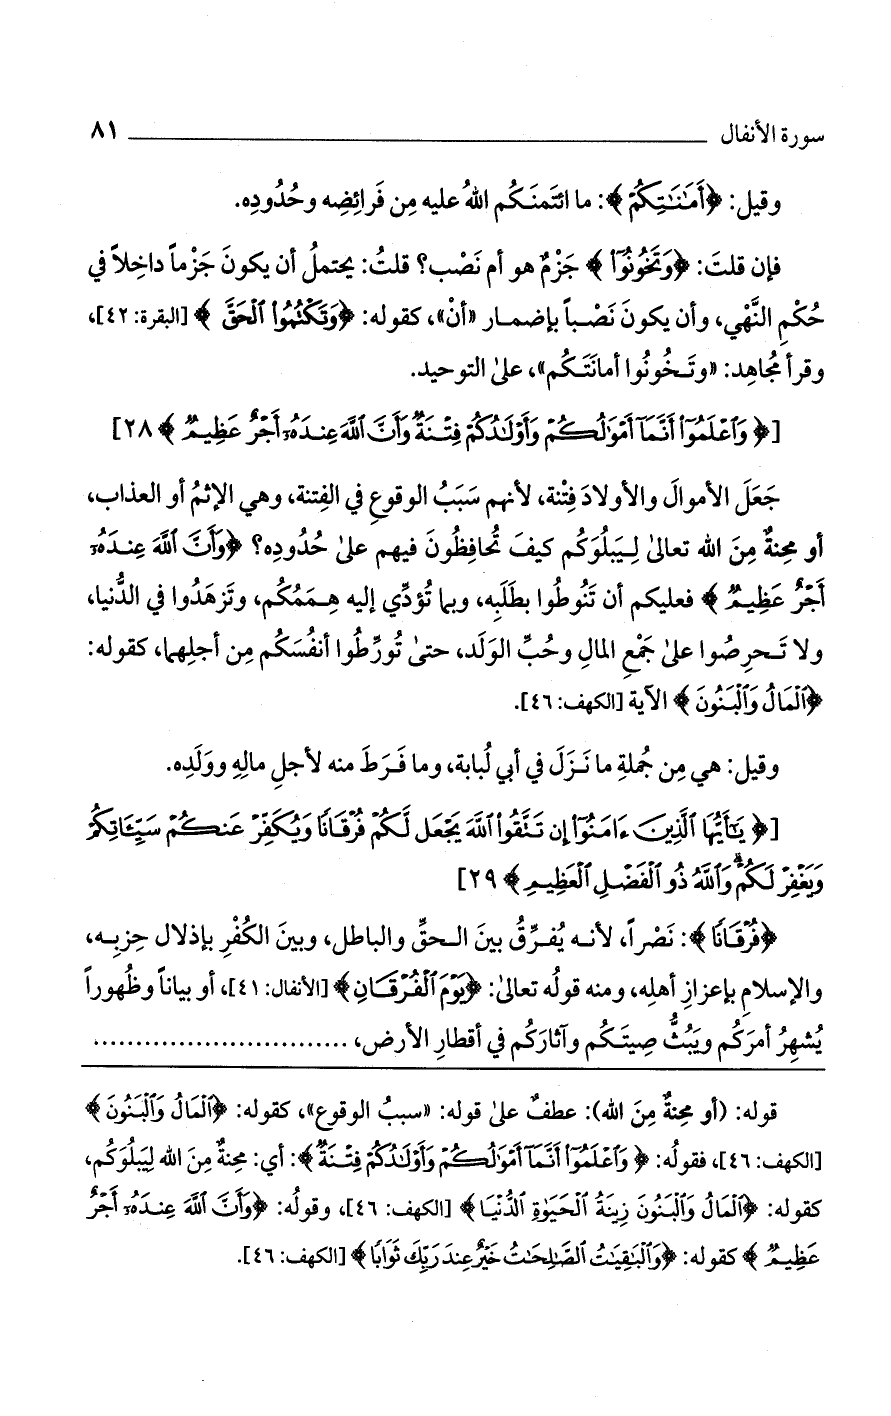 سورة الأنفال ٨١
وقيل: ﴿أَمَٰنَٰتِكُمْ﴾: ما ائتَمنَكُم اللهُ عليه مِن فَرائِضِه وحُدُودِه.
فإن قلتَ: ﴿وَتَخُونُوٓا۟﴾ جَزْمٌ هو أم نَصْب؟ قلتُ: يحتملُ أن يكونَ جَزْماً داخِلاً في
حُكْمِ النَّهْي، وأن يكونَ نَصْباً بإضمار «أنْ»، كقوله: ﴿وَتَكْتُمُوا۟ ٱلْحَقَّ﴾ [البقرة: ٤٢]،
وقرأ مُجاهِد: «وتَخُونُوا أمانَتَكُم»، علىٰ التوحيد.
[﴿وَٱعْلَمُوٓا۟ أَنَّمَآ أَمْوَٰلُكُمْ وَأَوْلَٰدُكُمْ فِتْنَةٌ وَأَنَّ ٱللَّهَ عِندَهُۥٓ أَجْرٌ عَظِيمٌ﴾ ٢٨]
جَعَلَ الأموالَ والأولادَ فِتْنة، لأنهم سَبَبُ الوقوعِ في الفِتنة، وهي الإثمُ أو العذاب،
أو مِحنةٌ مِنَ الله تعالىٰ لِيَبلُوَكُم كيفَ تُحافِظُونَ فيهم علىٰ حُدُودِه؟ ﴿وَأَنَّ ٱللَّهَ عِندَهُۥٓ
أَجْرٌ عَظِيمٌ﴾ فعليكم أن تَنُوطُوا بطَلَبِه، وبما تُؤدِّي إليه هِمَمُكُم، وتَزهَدُوا في الدُّنيا،
ولا تَحرِصُوا علىٰ جَمْعِ المالِ وحُبِّ الوَلَد، حتىٰ تُورِّطُوا أنفُسَكُم مِن أجلِهما، كقوله:
﴿ٱلْمَالُ وَٱلْبَنُونَ﴾ الآية [الكهف: ٤٦].
وقيل: هي مِن جُملةِ ما نَزَلَ في أبي لُبابة، وما فَرَطَ منه لأجلِ مالِهِ ووَلَدِه.
[﴿يَٰٓأَيُّهَا ٱلَّذِينَ ءَامَنُوٓا۟ إِن تَتَّقُوا۟ ٱللَّهَ يَجْعَل لَّكُمْ فُرْقَانًا وَيُكَفِّرْ عَنكُمْ سَيِّـَٔاتِكُمْ
وَيَغْفِرْ لَكُمْ ۗ وَٱللَّهُ ذُو ٱلْفَضْلِ ٱلْعَظِيمِ﴾ ٢٩]
﴿فُرْقَانًا﴾: نَصْراً، لأنه يُفرِّقُ بينَ الحقِّ والباطل، وبينَ الكُفْرِ بإذلال حِزبِه،
والإسلامِ بإعزازِ أهلِه، ومنه قولُه تعالىٰ: ﴿يَوْمَ ٱلْفُرْقَانِ﴾ [الأنفال: ٤١]، أو بياناً وظُهوراً
يُشهِرُ أمرَكُم ويَبُثُّ صِيتَكُم وآثارَكُم في أقطارِ الأرض، ..............................
قوله: (أو مِحنةٌ مِنَ الله): عطفٌ علىٰ قوله: «سببُ الوقوع»، كقوله: ﴿ٱلْمَالُ وَٱلْبَنُونَ﴾
[الكهف: ٤٦]، فقولُه: ﴿وَٱعْلَمُوٓا۟ أَنَّمَآ أَمْوَٰلُكُمْ وَأَوْلَٰدُكُمْ فِتْنَةٌ﴾: أي: مِحنةٌ مِنَ الله لِيَبلُوَكُم،
كقوله: ﴿ٱلْمَالُ وَٱلْبَنُونَ زِينَةُ ٱلْحَيَوٰةِ ٱلدُّنْيَا﴾ [الكهف: ٤٦]، وقولُه: ﴿وَأَنَّ ٱللَّهَ عِندَهُۥٓ أَجْرٌ
عَظِيمٌ﴾ كقوله: ﴿وَٱلْبَٰقِيَٰتُ ٱلصَّٰلِحَٰتُ خَيْرٌ عِندَ رَبِّكَ ثَوَابًا﴾ [الكهف: ٤٦].